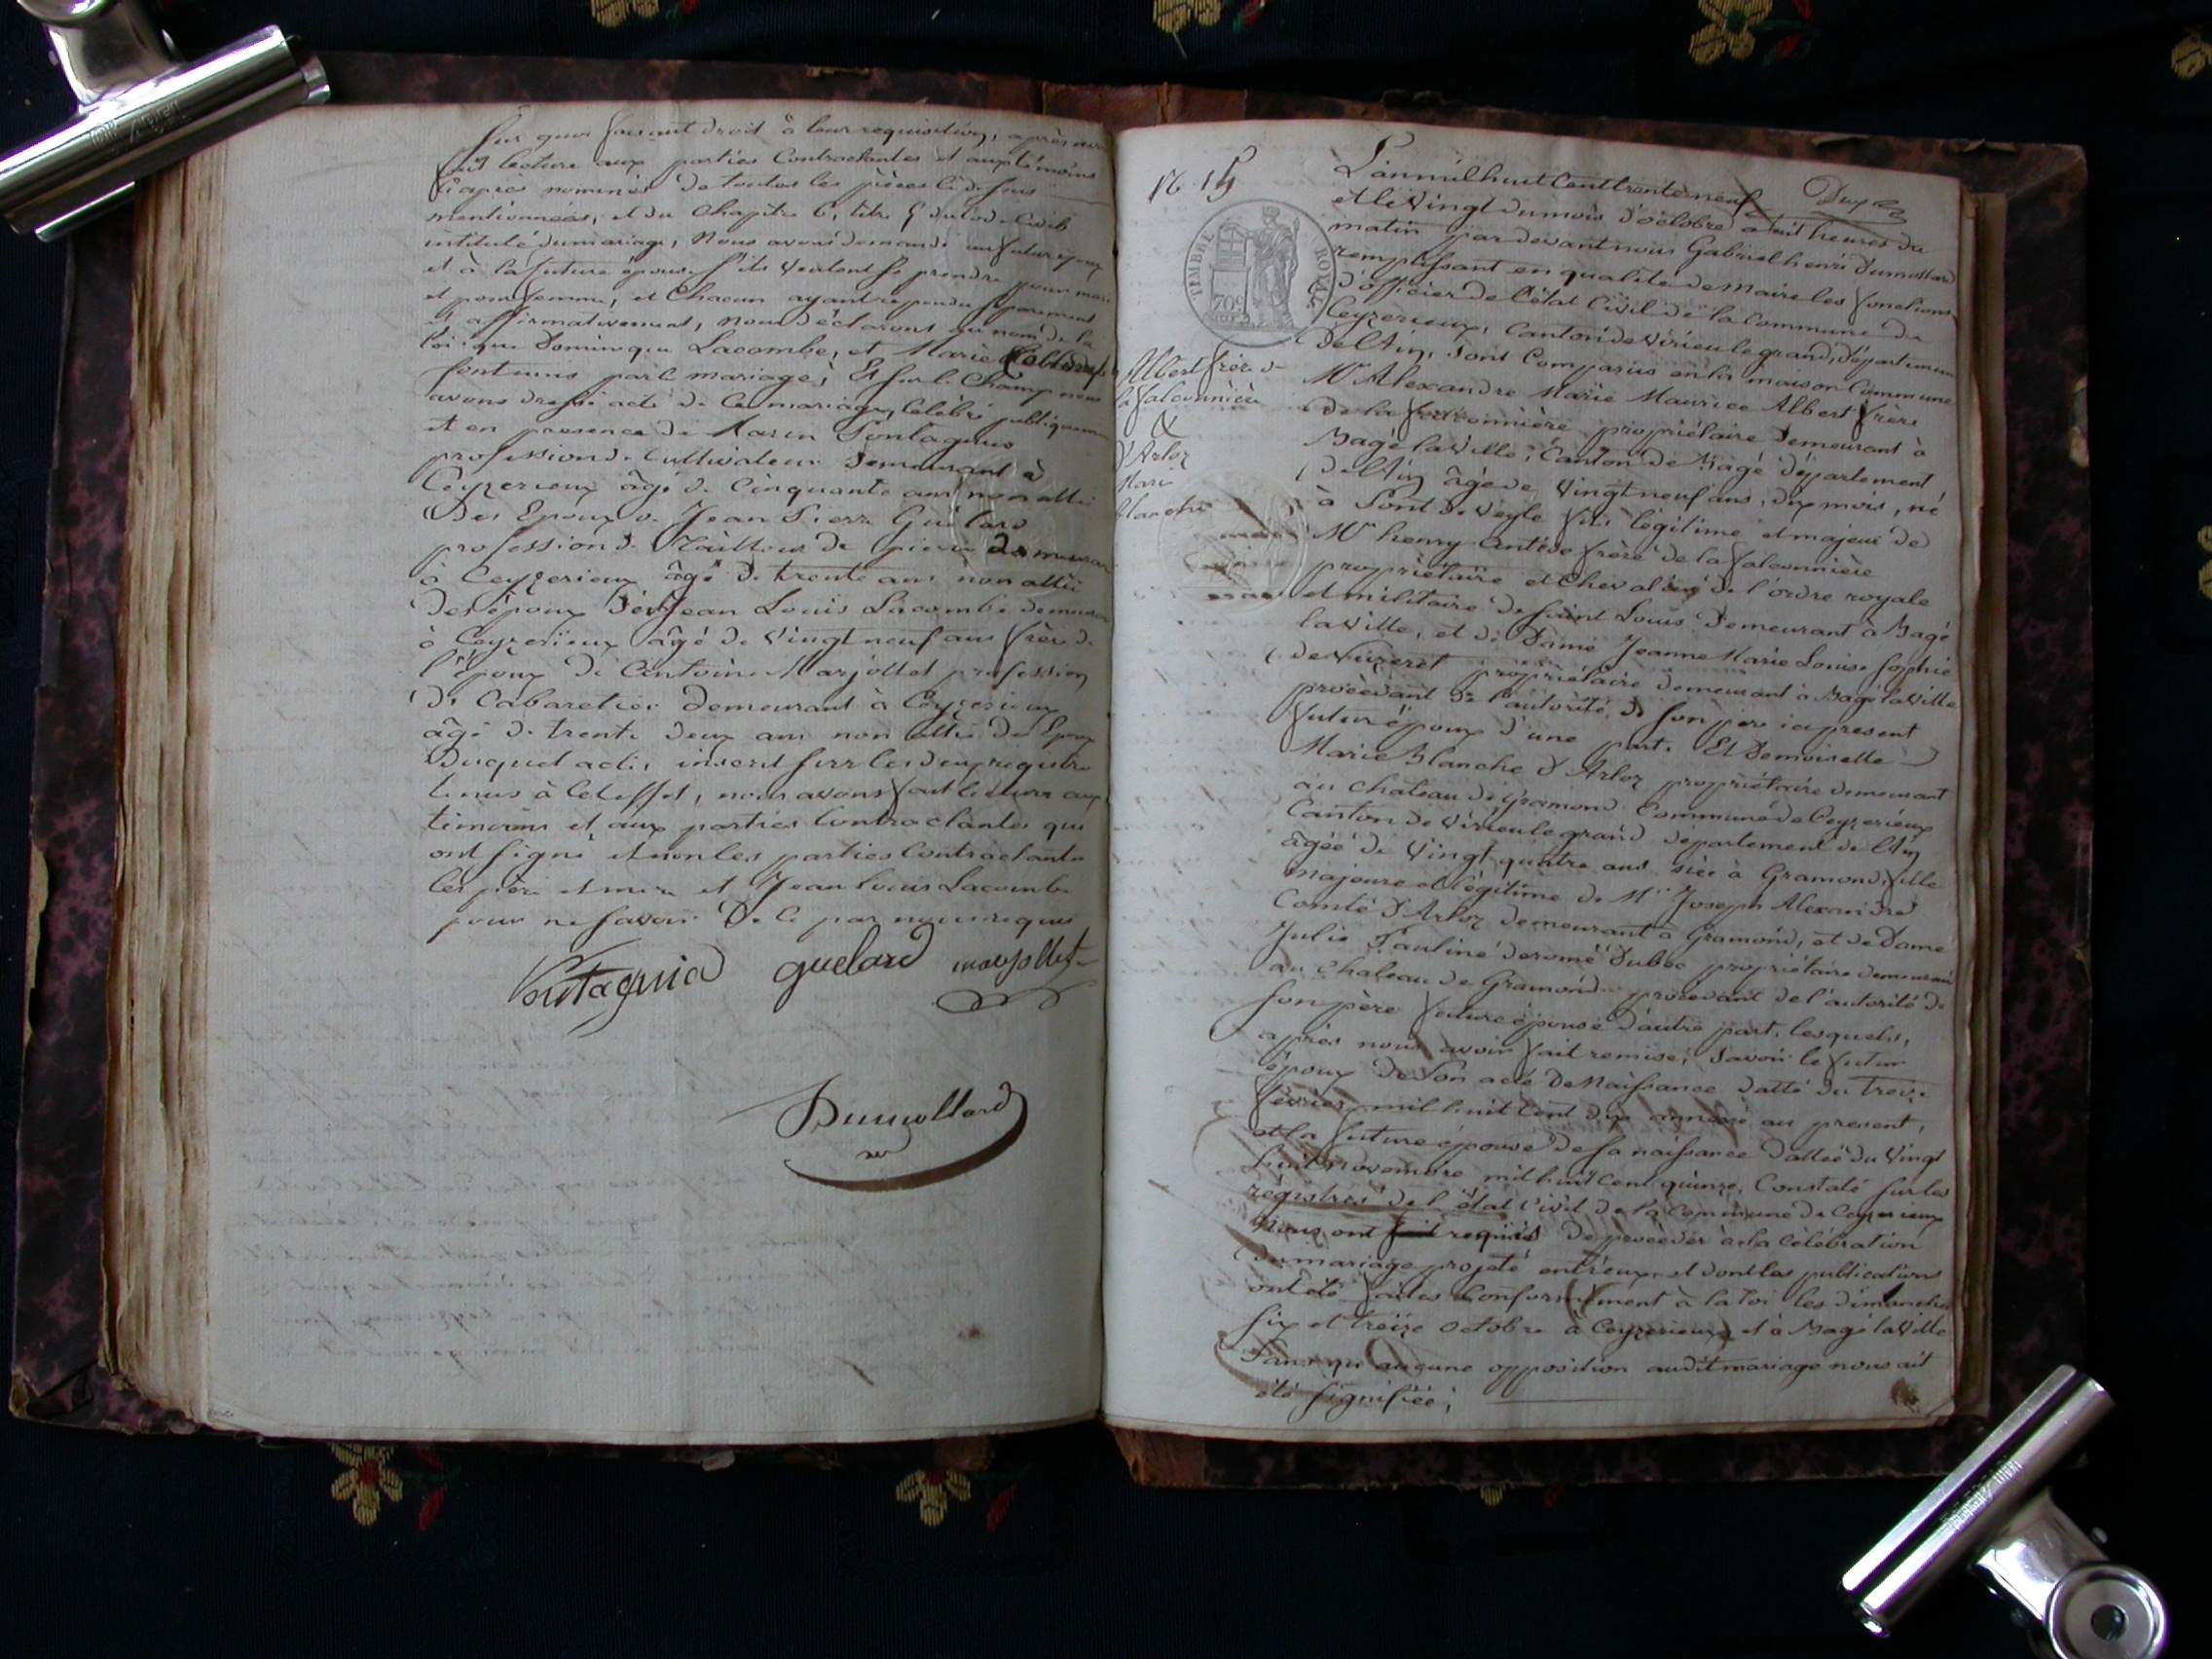 Sur quoi faisant droit à leur requisition, après avoir
fait lecture aux parties Contractantes et aux témoins
ci après nommés de toutes les pièces ci dessus
mentionnées, et du Chapitre 6, titre 5 du Code Civil
intitulé du mariage, Nous avons demandé au futur époux
et à la future épouse s'ils veulent se prendre pour mari
et pour femme, et Chacun ayant repondu séparement
et affirmativement, nous déclarons au nom de la
loi que Dominique Lacombe, et Marie
sont unis par le mariage; Et sur le Champ nous
avons dressé acte de ce mariage, Célébré publiquement
et en presence de Marin Pontagnia
profession de Cultivateur demeurant à
Ceyzerieux âgé de Cinquante ans non allié
Des Epoux de Jean Pierre Guélard
profession de de pierre demeurant
à Ceyzerieux âgé de trente ans non allié
des époux de Jean Louis Lacombe demeurant
à Ceyzerieux âgé de vingt neuf ans frère de
l'époux de Antoine Marjollet profession
de Cabaretier demeurant à Ceyzerieux
âgé de trente deux ans non allié des Epoux
Duquel acte, inscrit sur les deux registres
tenus à Cet effet, nous avons fait lecture aux
témoins et aux parties Contractantes qui
ont signé et non les parties Contractantes
les père et mere et Jean Louis Lacombe
pour ne savoir De ce par nous requis
guelard marjollet
Dumollard
L'an mil huit Cent trente neuf
et le Vingt du mois d'octobre à huit heures du
matin par devant nous Gabriel henri Dumollard
remplissant en qualité de Maire les fonctions
d'officier de l'état Civil de la Commune de
Ceyzerieux, Canton de Virieu le grand, Département
de l'Ain, sont Comparus en la maison Commune
Mr Alexandre Marie Maurice Albert frère
de la falconnière propriétaire demeurant à
Bagé la Ville, Canton de Bagé département
de l'Ain âgé de Vingt neuf ans, dix mois, né
à Pont de Veyle fils légitime et majeur de
Mr henry frère de la falconnière
propriétaire et Chevalier de l'ordre royale
et militaire de saint Louis demeurant à Bagé
la Ville, et de Dame Jeanne Marie Louise sophie
de propriétaire demeurant à Bagé la Ville
procèdant de l'autorité de son père ici present
futur époux d'une part. Et Demoiselle
Marie Blanche d'Arloz propriétaire demeurant
au chateau de Gramond Commune de Ceyzerieux
Canton de Virieu le grand département de l'Ain
âgée de Vingt quatre ans née à Gramond, fille
majeure et légitime de Mr Joseph Alexandre
Comte d'Arloz demeurant à Gramond, et de Dame
Julie Pauline propriétaire demeurant
au chateau de Gramond procèdant de l'autorité de
son père future épouse d'autre part. lesquels,
après nous avoir fait remise, savoir le futur
époux de son acte de Naissance datté du treize
février mil huit cent dix annexé au present,
et la future épouse de sa naissance dattée du Vingt
huit novembre mil huit Cent quinze, Constaté sur les
régistres de l'état Civil de la Commune de Ceyzerieux
Nous ont requis De procèder à la Célébration
du mariage projeté entr'eux, et dont les publications
ont été faites Conformément à la loi les dimanches
six et treize octobre à Ceyzerieux et à Bagé la Ville
Sans qu'aucune opposition audit mariage nous ait
été signifiée;
TIMBRE ROYAL
70c
Albert frère de
la falconnière
&
D'Arloz
Marie
blanche